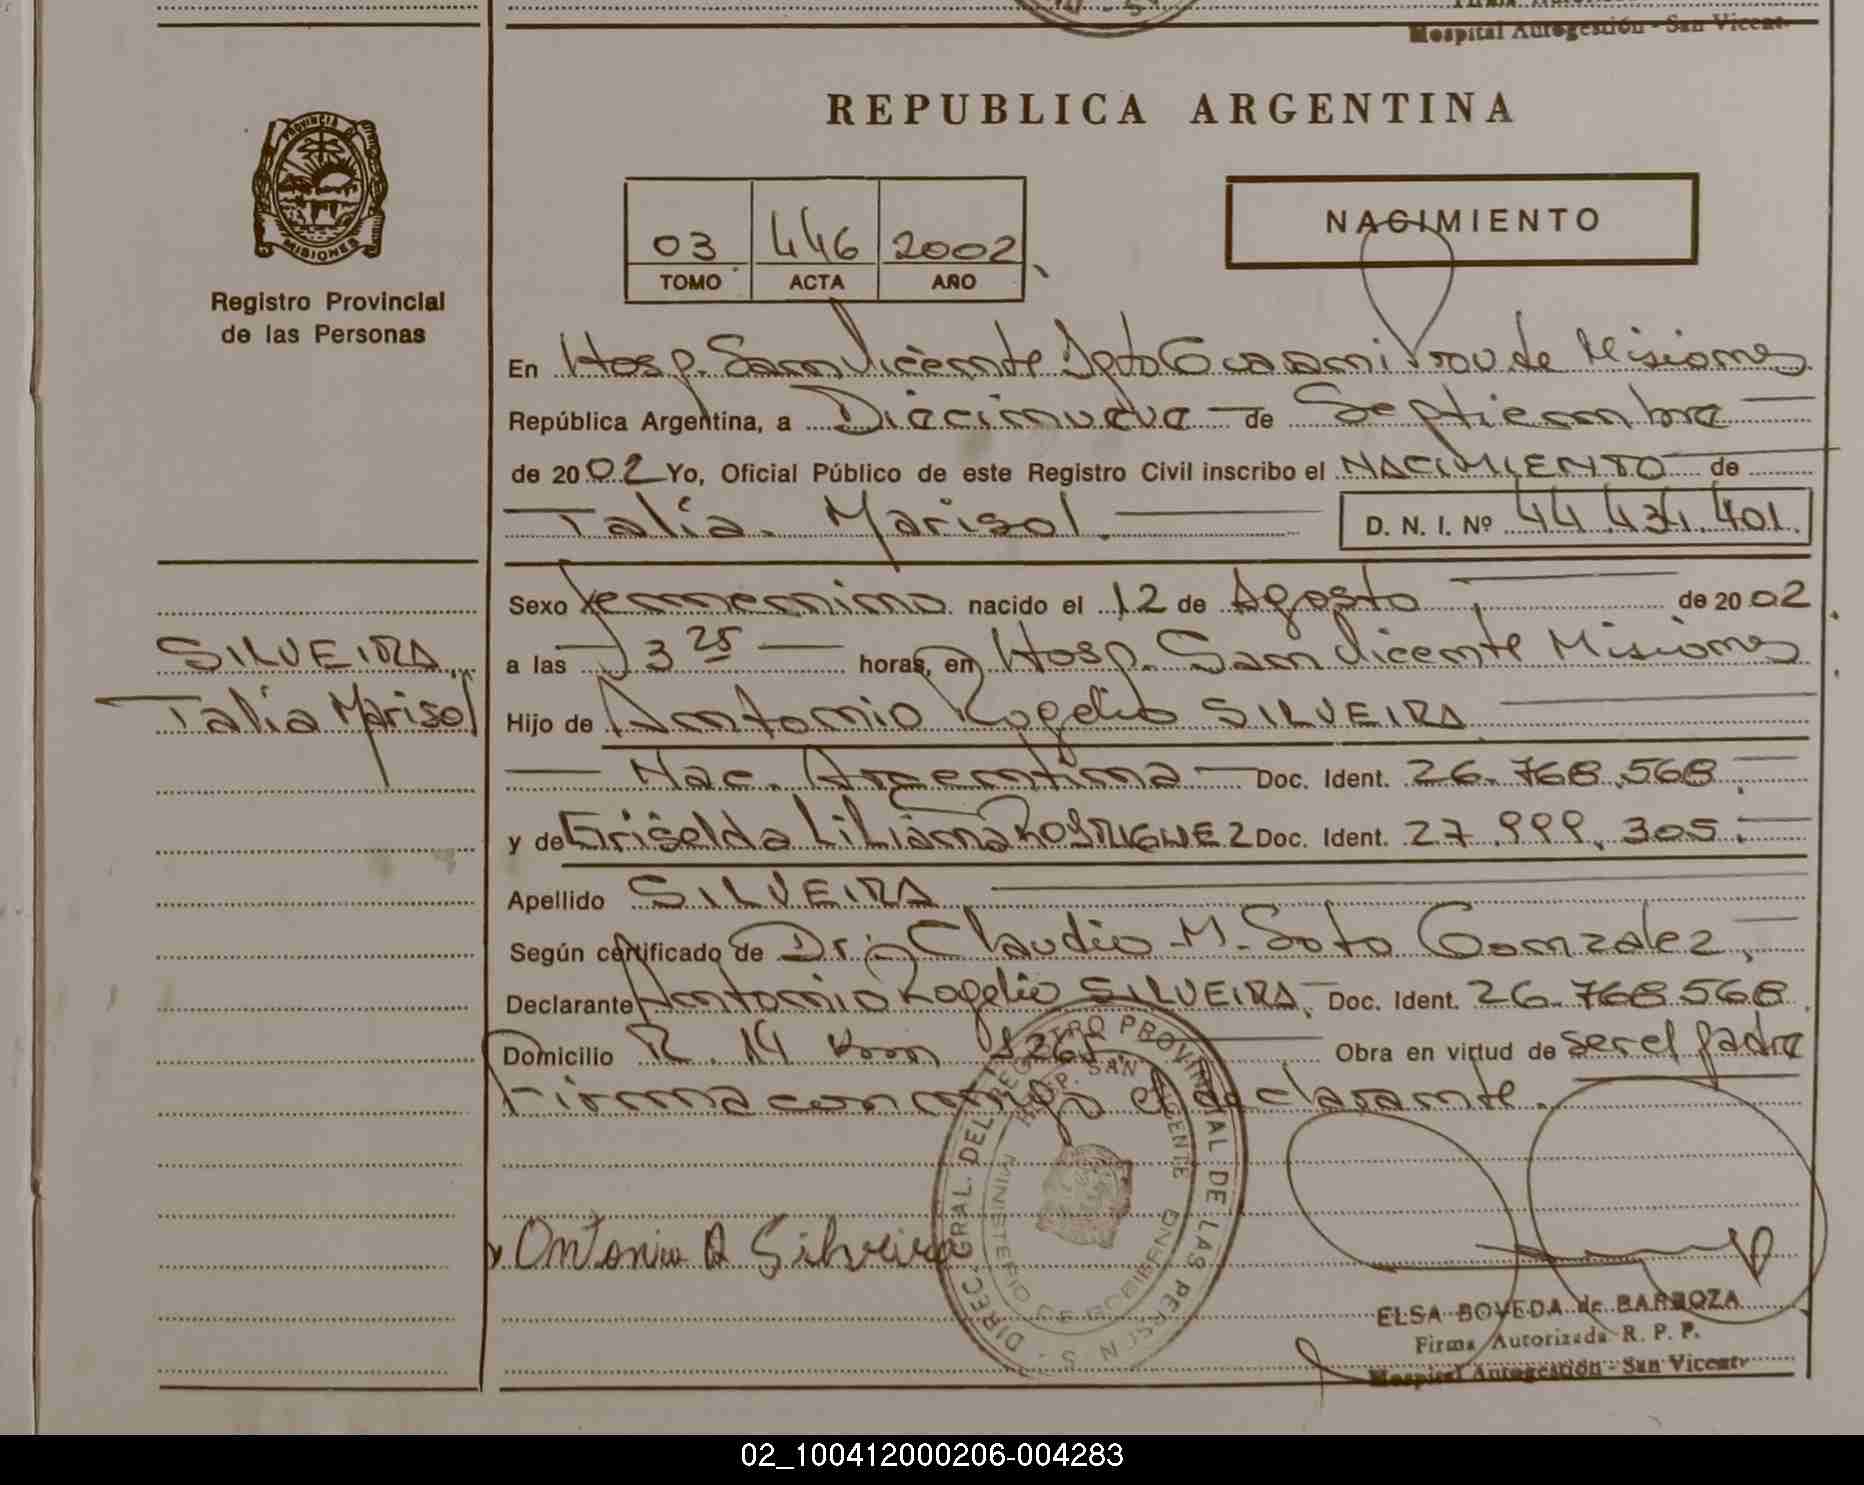 Hospital Autogestión - San Vicente
REPUBLICA ARGENTINA
PROVINCIA DE
MISIONES
Registro Provincial
de las Personas
03 446 2002
TOMO ACTA AÑO
NACIMIENTO
En Hosp. San Vicente Dpto Guarani Prov de Misiones
República Argentina, a Diecinueve de Septiembre
de 2002 Yo, Oficial Público de este Registro Civil inscribo el NACIMIENTO de
Talia Marisol D. N. I. Nº 44 434 401
Sexo femenino nacido el 12 de Agosto de 2002
a las 3 25 horas, en Hosp. San Vicente Misiones
SILVEIRA
Talia Marisol
Hijo de Antonio Rogelio SILVEIRA
Nac. Argentina Doc. Ident. 26.768.568
y de Griselda Liliana RODRIGUEZ Doc. Ident. 27.999.305
Apellido SILVEIRA
Según certificado de Dr. Claudio M. Soto Gonzalez
Declarante Antonio Rogelio SILVEIRA Doc. Ident. 26.768.568
Domicilio R. 14 Km Obra en virtud de ser el padre
Firma conmigo el declarante.
DIREC. GRAL. DEL REGISTRO PROVINCIAL DE LAS PERSONAS
HOSP. SAN VICENTE
MINISTERIO DE GOBIERNO
Antonio R Silveira
ELSA BOVEDA de BARBOZA
Firma Autorizada R. P. P.
Hospital Autogestión - San Vicente
02_100412000206-004283